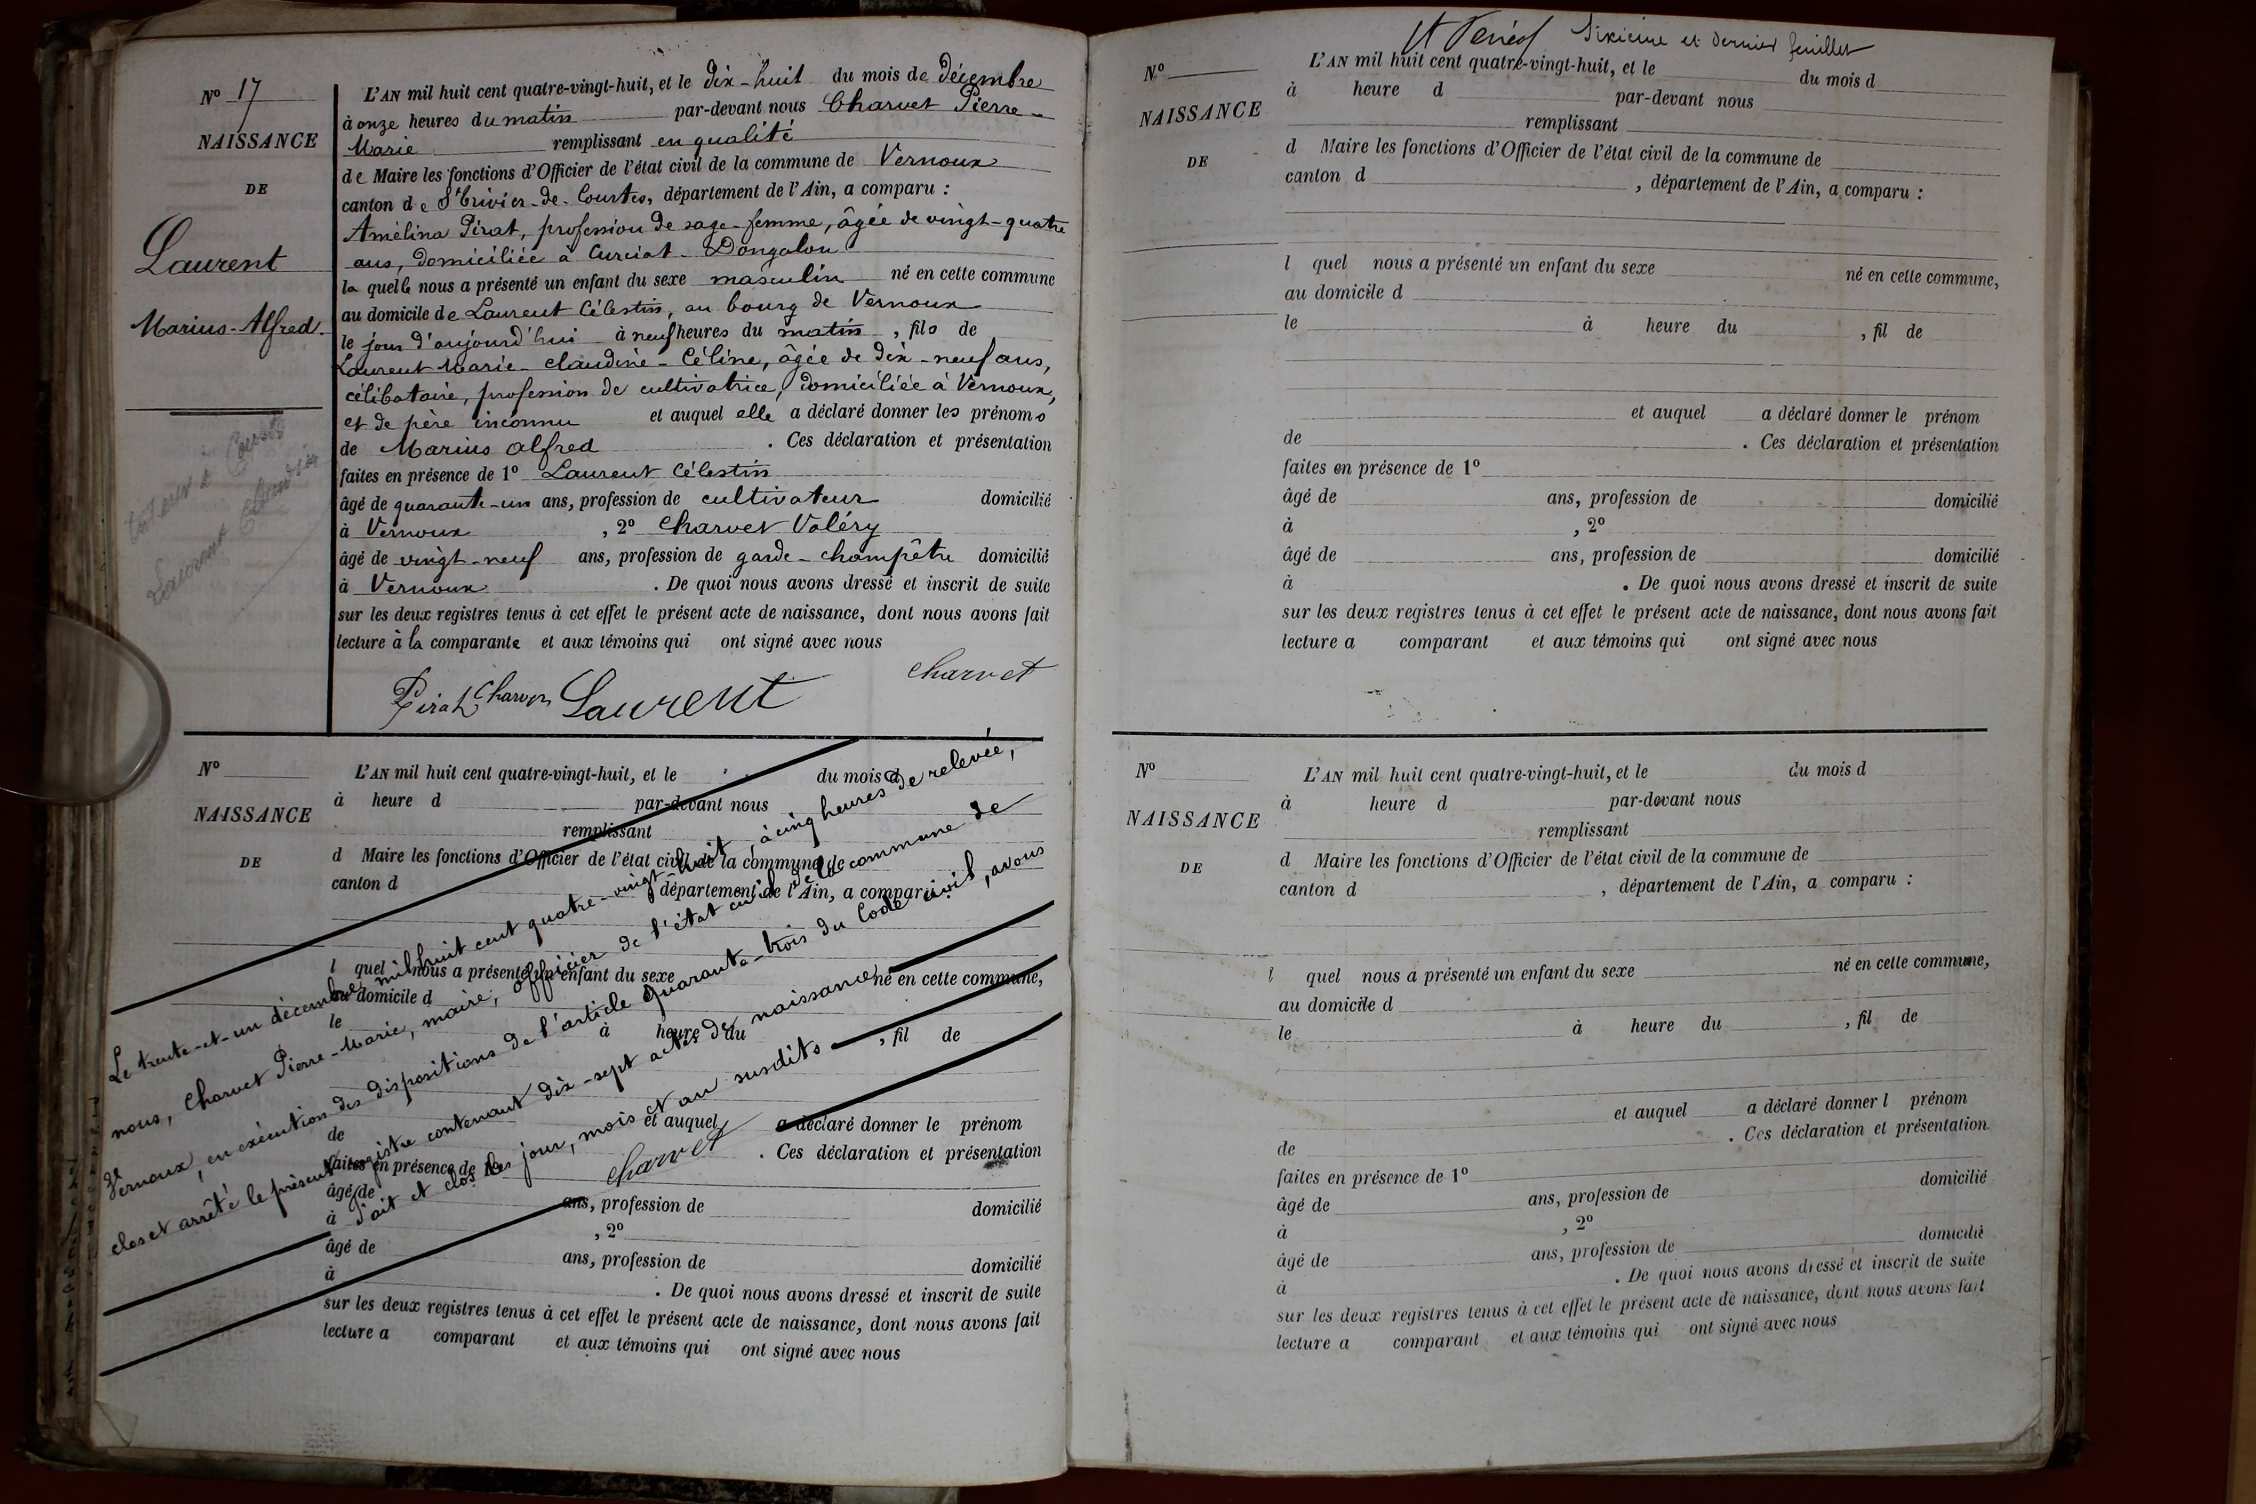 N° 17
NAISSANCE
DE
Laurent
Marius-Alfred.
L'AN mil huit cent quatre-vingt-huit, et le dix-huit du mois de décembre
à onze heures du matin par-devant nous Charvet Pierre-
Marie remplissant en qualité
de Maire les fonctions d'Officier de l'état civil de la commune de Vernoux
canton de St Trivier-de-Courtes, département de l'Ain, a comparu :
Amélina Pirat, profession de sage-femme, âgée de vingt-quatre
ans, domiciliée à Curciat-Dongalon
la quelle nous a présenté un enfant du sexe masculin né en cette commune
au domicile de Laurent Célestin, au bourg de Vernoux
le jour d'aujourd'hui à neuf heures du matin, fils de
Laurent Marie-Claudine-Céline, âgée de dix-neuf ans,
célibataire, profession de cultivatrice, domiciliée à Vernoux,
et de père inconnu et auquel elle a déclaré donner les prénoms
de Marius Alfred. Ces déclaration et présentation
faites en présence de 1° Laurent Célestin
âgé de quarante-un ans, profession de cultivateur domicilié
à Vernoux, 2° Charvet Valéry
âgé de vingt-neuf ans, profession de garde-champêtre domicilié
à Vernoux. De quoi nous avons dressé et inscrit de suite
sur les deux registres tenus à cet effet le présent acte de naissance, dont nous avons fait
lecture à la comparante et aux témoins qui ont signé avec nous
Pirat Charvet Laurent Charvet
N°
NAISSANCE
DE
L'AN mil huit cent quatre-vingt-huit, et le du mois d
à heure d par-devant nous
remplissant
d Maire les fonctions d'Officier de l'état civil de la commune de
canton d département de l'Ain, a comparu :
l quel nous a présenté un enfant du sexe né en cette commune,
au domicile d
le à heure du , fil de
et auquel a déclaré donner le prénom
de . Ces déclaration et présentation
faites en présence de 1°
âgé de ans, profession de domicilié
à , 2°
âgé de ans, profession de domicilié
à . De quoi nous avons dressé et inscrit de suite
sur les deux registres tenus à cet effet le présent acte de naissance, dont nous avons fait
lecture a comparant et aux témoins qui ont signé avec nous
Le trente-et-un décembre mil huit cent quatre-vingt-huit, à cinq heures de relevée,
nous, Charvet Pierre-Marie, maire, officier de l'état civil de la commune de
Vernoux, en exécution des dispositions de l'article quarante-trois du Code civil, avons
clos et arrêté le présent registre contenant dix-sept actes de naissance
Fait et clos les jour, mois et an susdits
Charvet
Sixième et dernier feuillet
N°
NAISSANCE
DE
L'AN mil huit cent quatre-vingt-huit, et le du mois d
à heure d par-devant nous
remplissant
d Maire les fonctions d'Officier de l'état civil de la commune de
canton d , département de l'Ain, a comparu :
l quel nous a présenté un enfant du sexe né en cette commune,
au domicile d
le à heure du , fil de
et auquel a déclaré donner le prénom
de . Ces déclaration et présentation
faites en présence de 1°
âgé de ans, profession de domicilié
à , 2°
âgé de ans, profession de domicilié
à . De quoi nous avons dressé et inscrit de suite
sur les deux registres tenus à cet effet le présent acte de naissance, dont nous avons fait
lecture a comparant et aux témoins qui ont signé avec nous
N°
NAISSANCE
DE
L'AN mil huit cent quatre-vingt-huit, et le du mois d
à heure d par-devant nous
remplissant
d Maire les fonctions d'Officier de l'état civil de la commune de
canton d , département de l'Ain, a comparu :
l quel nous a présenté un enfant du sexe né en cette commune,
au domicile d
le à heure du , fil de
et auquel a déclaré donner l prénom
de . Ces déclaration et présentation
faites en présence de 1°
âgé de ans, profession de domicilié
à , 2°
âgé de ans, profession de domicilié
à . De quoi nous avons dressé et inscrit de suite
sur les deux registres tenus à cet effet le présent acte de naissance, dont nous avons fait
lecture a comparant et aux témoins qui ont signé avec nous